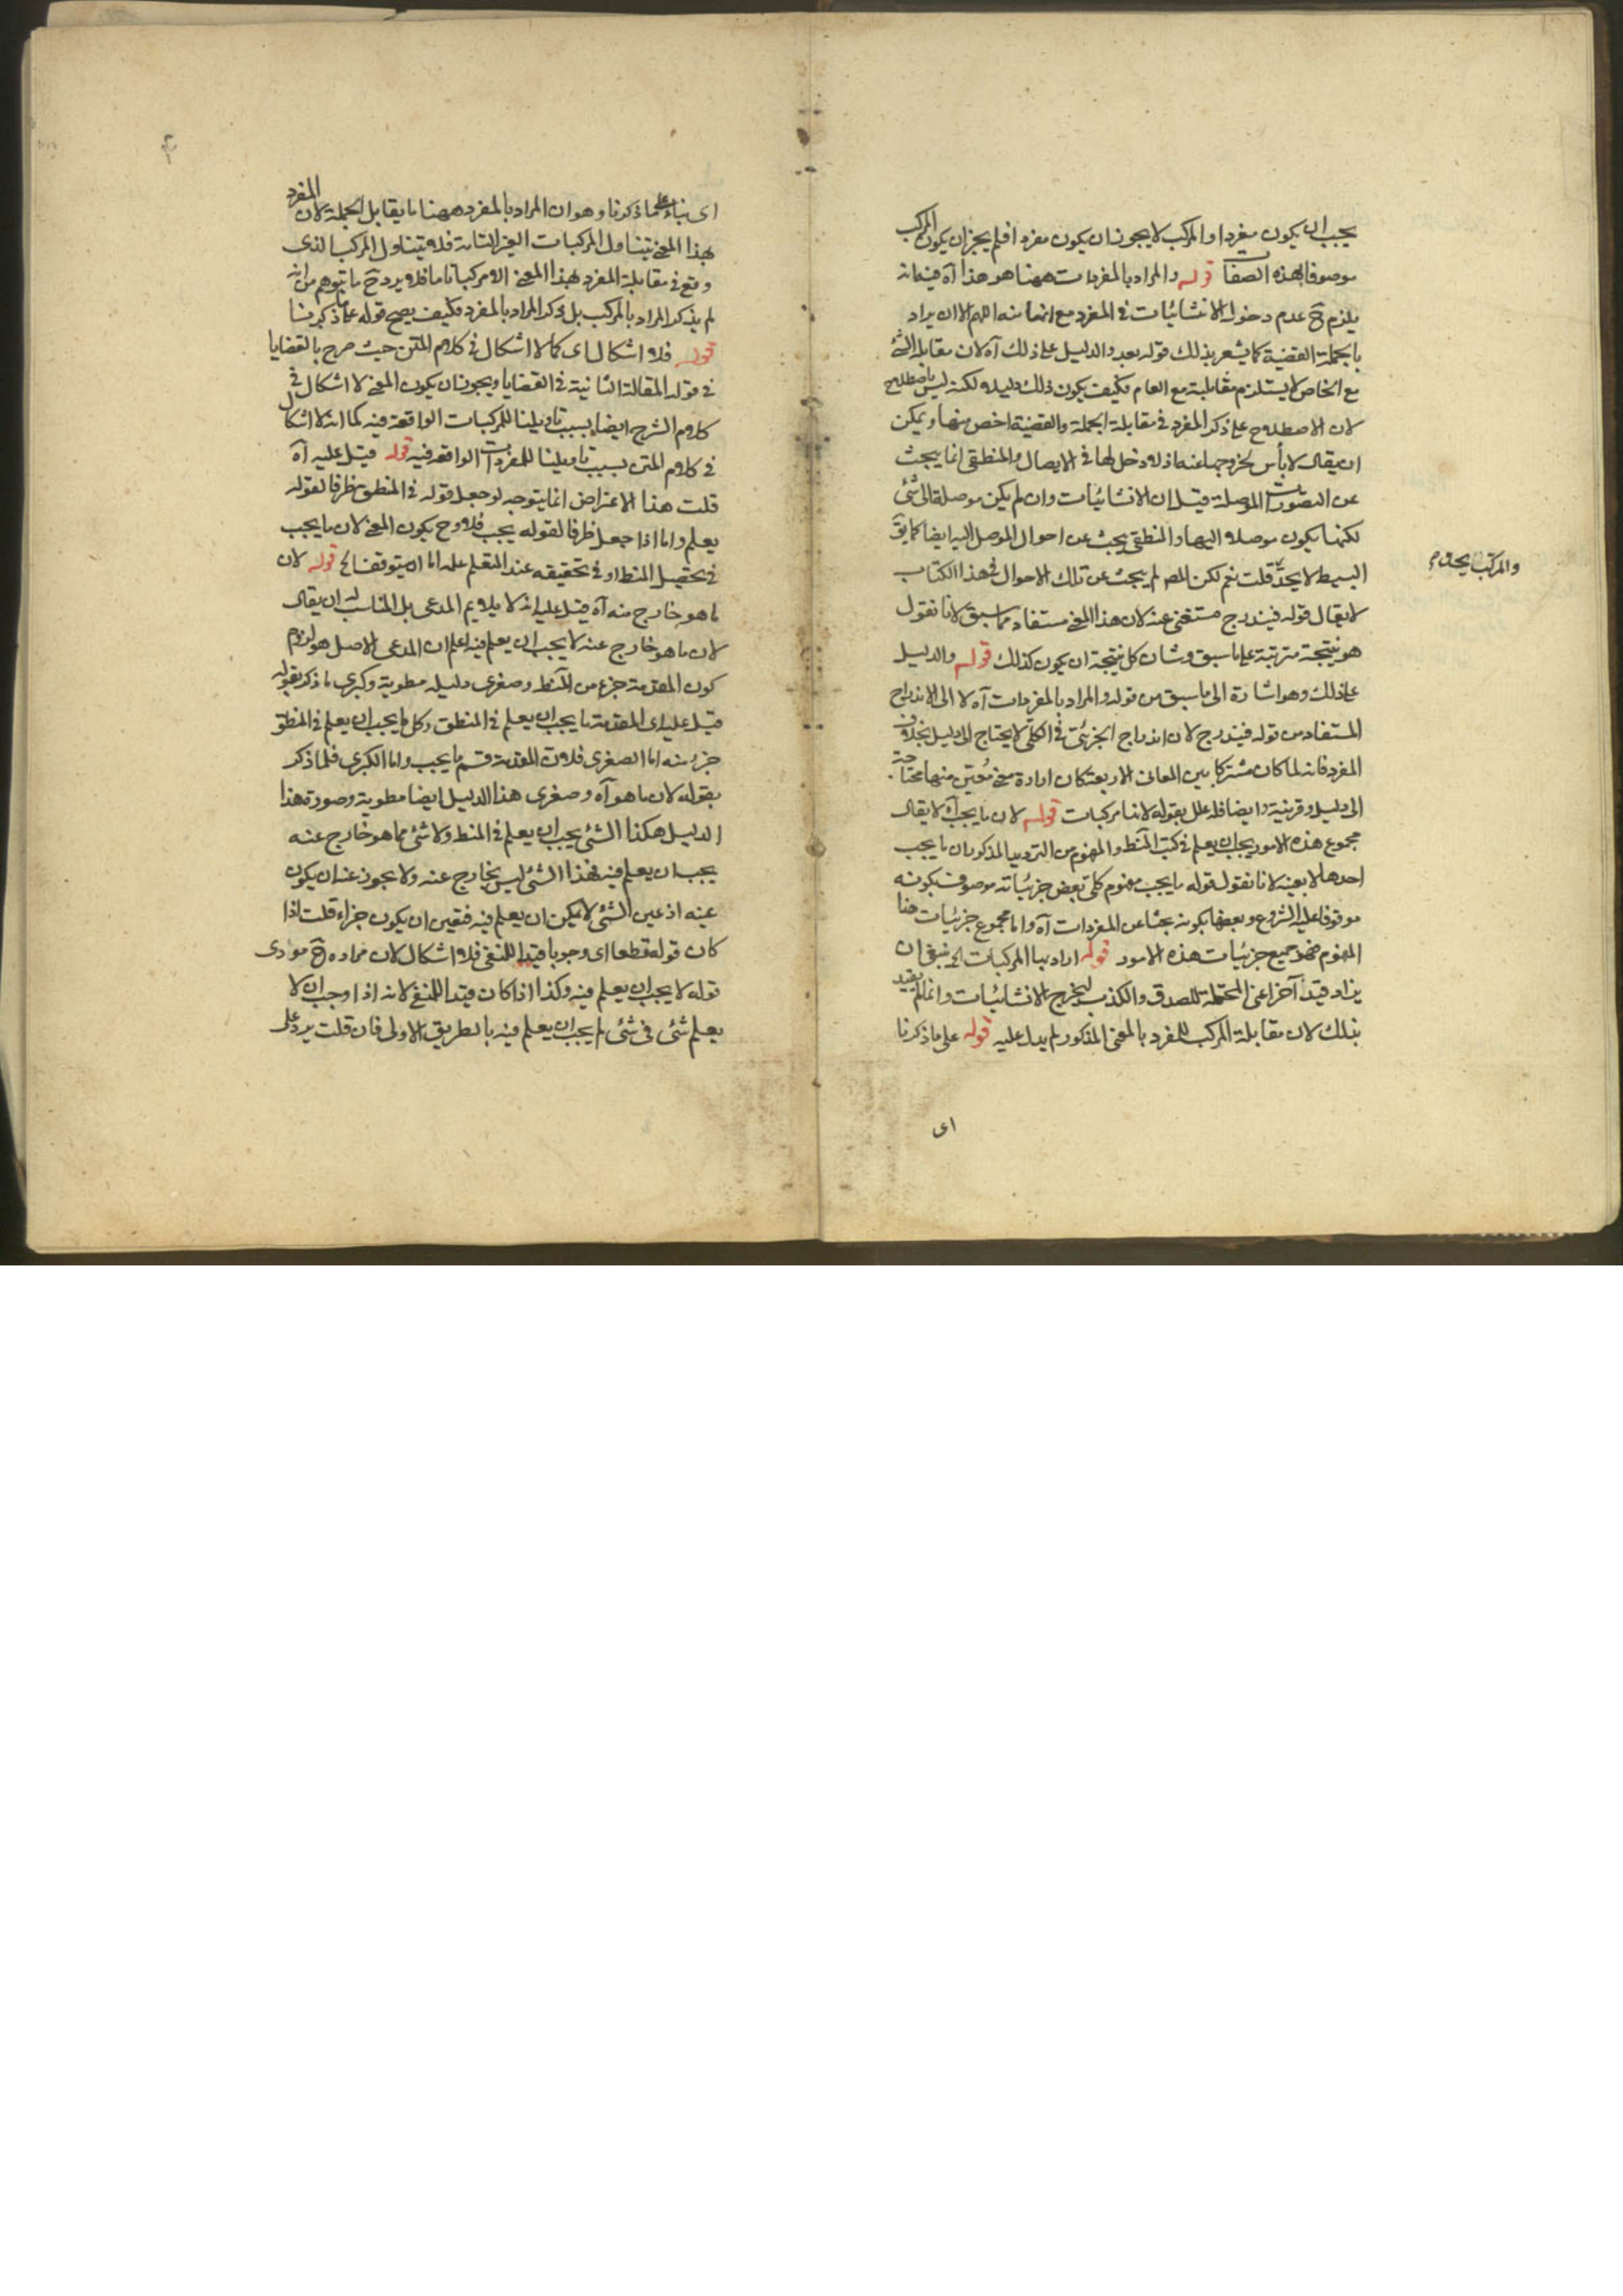 يجب ان يكون مفردا والمركب لا يجوز ان يكون مفردا فلم يجز ان يكون المركب
موصوفا بهذه الصفات قوله والمراد بالمفردات ههنا هو هذا آه فيه انه
يلزم ح عدم دخول الانشائيات في المفرد مع انها منه اللهم الا ان يراد
بالجملة القضية كما يشعر بذلك قوله بعد والدليل على ذلك آه لان مقابلة الشئ
مع الخاص لا يستلزم مقابلته مع العام فكيف يكون ذلك دليله لكنه ليس باصطلاح
لان الاصطلاح على ذكر المفرد في مقابلة الجملة والقضية اخص منها ويمكن
ان يقال لا بأس لخروجها عنه اذ لا دخل لها في الايصال والمنطقى انما يبحث
عن التصورات الموصلة قيل ان الانشائيات وان لم يكن موصلة الى شئ
لكنها يكون موصلا اليها والمنطقى يبحث عن احوال الموصل اليه ايضا كما يق
البسيط لا يحد قلت نعم لكن المص لم يبحث عن تلك الاحوال في هذا الكتاب
والمركب يحد م
لا يقال قوله فيندرج مستغنى عنه لان هذا المعنى مستفاد مما سبق لانا نقول
هو نتيجة مترتبة على ما سبق وشان كل نتيجة ان يكون كذلك قوله والدليل
على ذلك وهو اشارة الى ما سبق من قوله والمراد بالمفردات آه لا الى الاندراج
المستفاد من قوله فيندرج لان اندراج الجزئى في الكلى لا يحتاج الى دليل بخلاف
المفرد فانه لما كان مشتركا بين المعانى الاربعة كان ارادة معنى معين منها محتاجة
الى دليل وقرينة وايضا قد علل بقوله لانها مركبات قوله لان ما يجب آه لا يقال
مجموع هذه الامور يجب ان يعلم في كتب المنطق والمفهوم من الترديد المذكور ان ما يجب
احدها لا بعينه لانا نقول قوله ما يجب مفهوم كلى بعض جزئياته موصوف بكونه
موقوفا عليه الشروع وبعضها بكونه بحثا عن المفردات آه واما مجموع جزئيات هذا
المفهوم فهو جميع جزئيات هذه الامور قوله اراد بها المركبات الخ ينبغى ان
يزاد قيد آخر اعنى المحتملة للصدق والكذب ليخرج الانشائيات وانما لم يقيد
بذلك لان مقابلة المركب للمفرد بالمعنى المذكور لم يدل عليه قوله على ما ذكرنا
اى
اى بناء على ما ذكرنا وهو ان المراد بالمفرد ههنا ما يقابل الجملة لان المفرد
بهذا المعنى يتناول المركبات الغير التامة فلا يتناول المركب الذى
وقع في مقابلة المفرد بهذا المعنى الا مركبا تاما فلا يرد ح ما يتوهم من انه
لم يذكر المراد بالمركب بل ذكر المراد بالمفرد فكيف يصح قوله على ما ذكرنا
قوله فلا اشكال اى كما لا اشكال في كلام المتن حيث صرح بالقضايا
في قوله المقالة الثانية في القضايا ويجوز ان يكون المعنى لا اشكال في
كلام الشرح ايضا بسبب تاويلنا للمركبات الواقعة فيه كما انه لا اشكال
في كلام المتن بسبب تاويلنا للمفردات الواقعة فيه قوله قيل عليه آه
قلت هذا الاعتراض انما يتوجه لو جعل قوله في المنطق ظرفا لقوله
يعلم واما اذا جعل ظرفا لقوله يجب فلا وح يكون المعنى لان ما يجب
في تحصيل المنطق او في تحقيقه عند المتعلم علمه اما ان يتوقف الخ قوله لان
ما هو خارج منه آه قيل عليه انه لا يلايم المدعى بل المناسب له ان يقال
لان ما هو خارج عنه لا يجب ان يعلم فيه اعلم ان المدعى الاصل هو لزوم
كون المقدمة جزء من المنطق وصغرى دليله مطوية وكبرى ما ذكر بقوله
قيل عليه اى المقدمة ما يجب ان يعلم في المنطق وكل ما يجب ان يعلم في المنطق
جزء منه اما الصغرى فلان المقدمة قسم ما يجب واما الكبرى فلما ذكر
بقوله لان ما هو آه وصغرى هذا الدليل ايضا مطوية وصورة هذا
الدليل هكذا الشئ يجب ان يعلم في المنطق ولا شئ مما هو خارج عنه
يجب ان يعلم فيه فهذا الشئ ليس بخارج عنه ولا يجوز عنه ان يكون
عينه اذ عين الشئ لا يمكن ان يعلم فيه فتعين ان يكون جزاء قلت اذا
كان قوله قطعا اى وجوبا قيدا للنفى فلا اشكال لان مراده ح مؤدى
قوله لا يجب ان يعلم فيه وكذا اذا كان قيدا للمنفى لانه اذا وجب ان لا
يعلم شئ في شئ لم يجب ان يعلم فيه بالطريق الاولى فان قلت يرد على